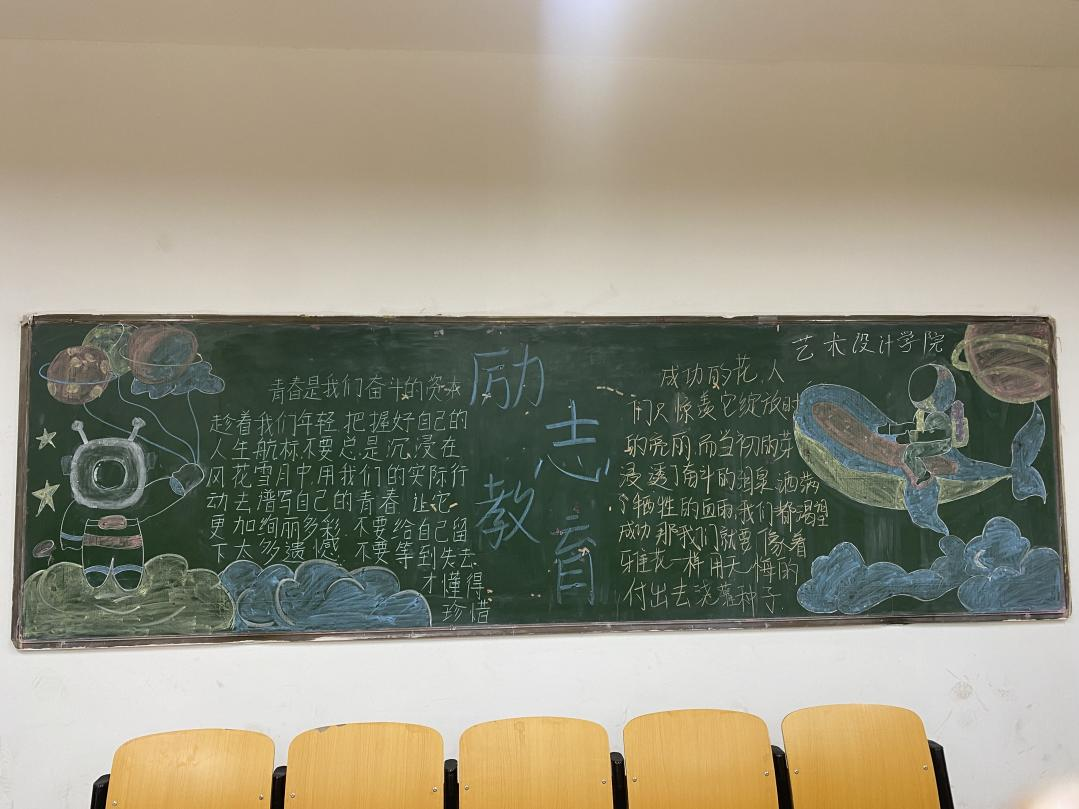 励志教育
艺术设计学院
青春是我们奋斗的资本
趁着我们年轻,把握好自己的
人生航标,不要总是沉浸在
风花雪月中,用我们的实际行
动去谱写自己的青春,让它
更加绚丽多彩,不要给自己留
下太多遗憾,不要等到失去
才懂得
珍惜
成功的花,人
们只惊羡它绽放时
的亮丽,而当初的芽
浸透了奋斗的泪泉,洒满
了牺牲的血雨,我们都渴望
成功,那我们就要像
花一样,用大 的
付出去浇灌种子.